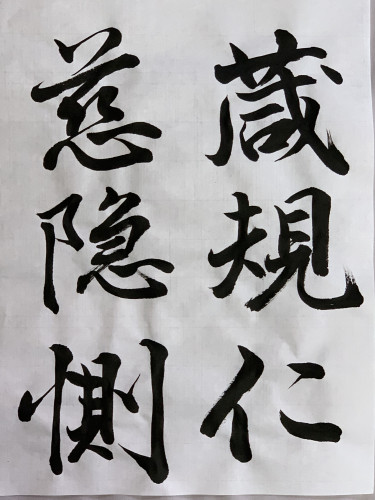 箴規仁
慈隐惻